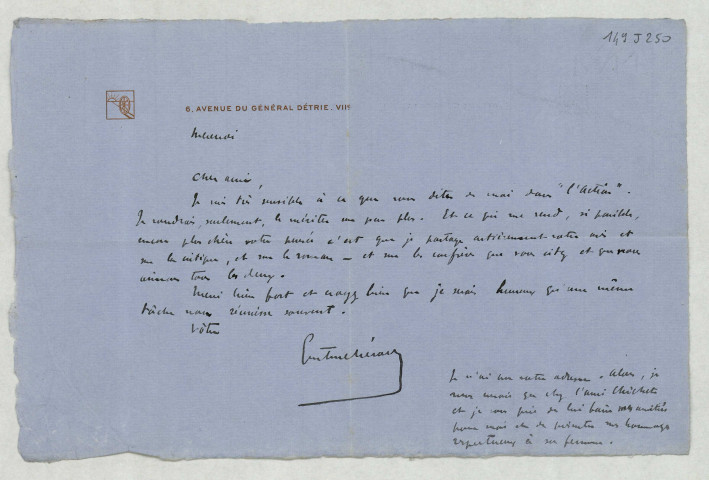 149 J 250
6, AVENUE DU GÉNÉRAL DÉTRIE, VIIe
Mercredi
Cher ami,
Je suis très sensible à ce que vous dites de moi dans "l'Action".
Je voudrais, seulement, le mériter un peu plus. Et ce qui me rend, si possible,
encore plus chère votre pensée c'est que je partage entièrement votre avis et
sur la critique, et sur le roman – et sur les confrères que vous citez et que nous
aimons tous les deux.
Merci bien fort et croyez bien que je suis heureux qu'une même
tâche nous réunisse souvent.
Vôtre
Je n'ai pas votre adresse. Alors, je
vous envoie ça chez l'ami
et je vous prie de lui faire mes amitiés
pour moi et de présenter mes hommages
respectueux à sa femme.